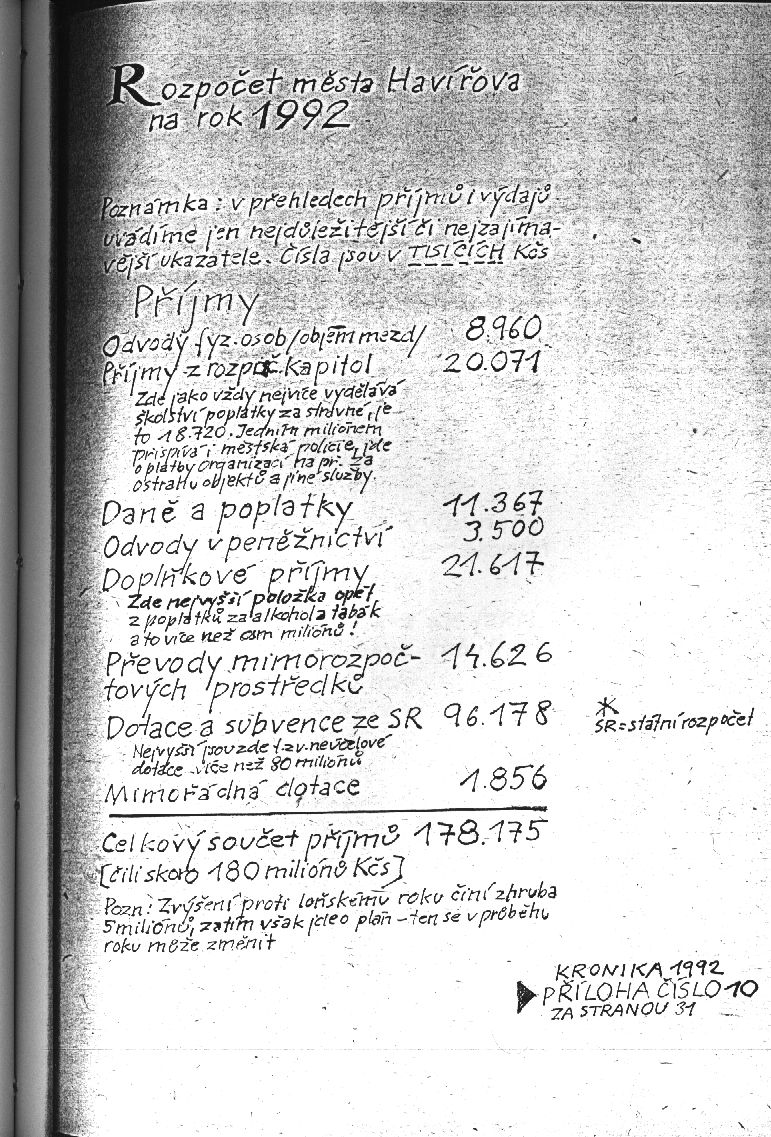 Rozpočet města Havířova
na rok 1992
Poznámka : v přehledech příjmů i výdajů
uvádíme jen nejdůležitější či nejzajíma-
vější ukazatele. Čísla jsou v TISÍCÍCH Kčs
Příjmy
Odvody fyz. osob/objem mezd/ 8.960
Příjmy z rozpoč. kapitol 20.071
Zde jako vždy nejvíce vydělává
školství poplatky za stravné, je
to 18.720. Jedním miliónem
přispívá i městská policie, jde
o platby organizací na př. za
ostrahu objektů a jiné služby.
Daně a poplatky 11.367
Odvody v peněžnictví 3.500
Doplňkové příjmy 21.617
Zde nejvyšší položka opět
z poplatků za alkohol a tabák
a to více než osm miliónů !
Převody mimorozpoč- 14.626
tových prostředků
Dotace a subvence ze SR 96.178
*
SR = státní rozpočet
Nejvyšší jsou zde t.zv. neúčelové
dotace - více než 80 miliónů
Mimořádná dotace 1.856
Celkový součet příjmů 178.175
[čili skoro 180 miliónů Kčs]
Pozn: Zvýšení proti loňskému roku činí zhruba
5 miliónů, zatím však jde o plán - ten se v průběhu
roku může změnit
KRONIKA 1992
PŘÍLOHA ČÍSLO 10
ZA STRANOU 31